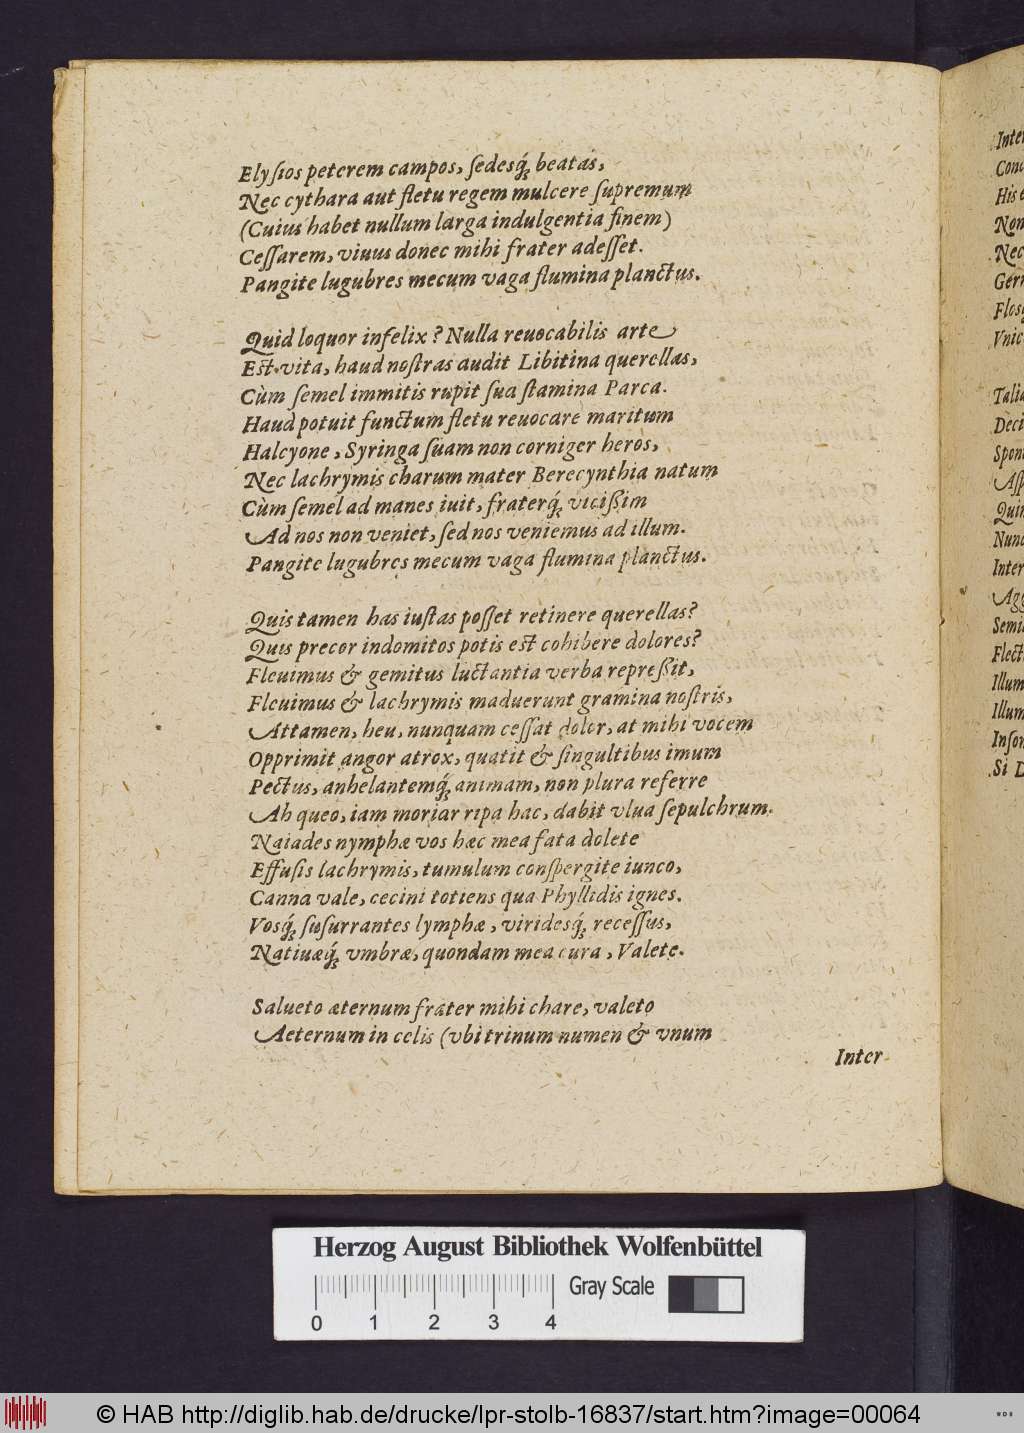 Elyſios peterem campos, ſedesq́; beatas,
Nec cythara aut fletu regem mulcere ſupremum
(Cuius habet nullum larga indulgentia finem)
Ceſſarem, viuus donec mihi frater adeſſet.
Pangite lugubres mecum vaga flumina planctus.

Quid loquor infelix? Nulla reuocabilis arte
Est vita, haud noſtras audit Libitina querellas,
Cùm ſemel immitis rupit ſua ſtamina Parca.
Haud potuit functum fletu reuocare maritum
Halcyone, Syringa ſuam non corniger heros,
Nec lachrymis charum mater Berecynthia natum
Cùm ſemel ad manes iuit, fraterq́; vicißim
Ad nos non veniet, ſed nos veniemus ad illum.
Pangite lugubres mecum vaga flumina planctus.

Quis tamen has iuſtas poſſet retinere querellas?
Quis precor indomitos potis est cohibere dolores?
Fleuimus & gemitus luctantia verba repreßit,
Fleuimus & lachrymis maduerunt gramina noſtris,
Attamen, heu, nunquam ceſſat dolor, at mihi vocem
Opprimit angor atrox, quatit & ſingultibus imum
Pectus, anhelantemq́; animam, non plura referre
Ah queo, iam moriar ripa hac, dabit vlua ſepulchrum.
Naiades nymphæ vos hæc mea fata dolete
Effuſis lachrymis, tumulum conſpergite iunco,
Canna vale, cecini toties qua Phyllidis ignes.
Vosq́; ſuſurrantes lymphæ, viridesq́; receſſus,
Natiuæq́; vmbræ, quondam mea cura, Valete.

Salueto æternum frater mihi chare, valeto
Aeternum in celis (vbi trinum numen & vnum
Inter
Inter
Conc
His e
Non
Nec
Germ
Flosq
Vnic
Talia
Deci
Spon
Aſp
Quin
Nunc
Inter
Agg
Semi
Flect
Illum
Illum
Inſon
Si D
Herzog August Bibliothek Wolfenbüttel
Gray Scale
0 1 2 3 4
© HAB http://diglib.hab.de/drucke/lpr-stolb-16837/start.htm?image=00064